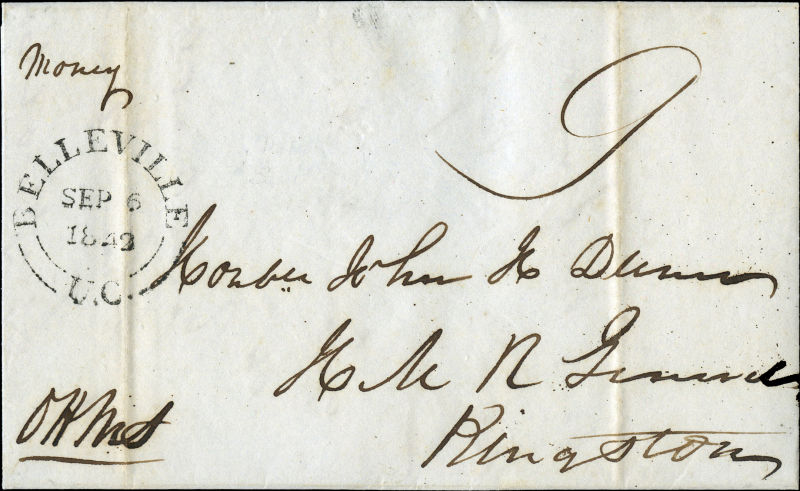 Money
9
BELLEVILLE
SEP 6
1842
U.C.
Honble John H Dunn
H M R General
Kingston
OHMS